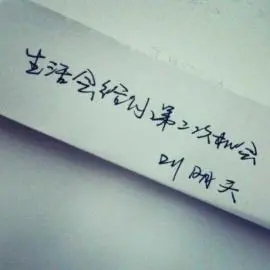 生活会给付第二次机会
叫明天